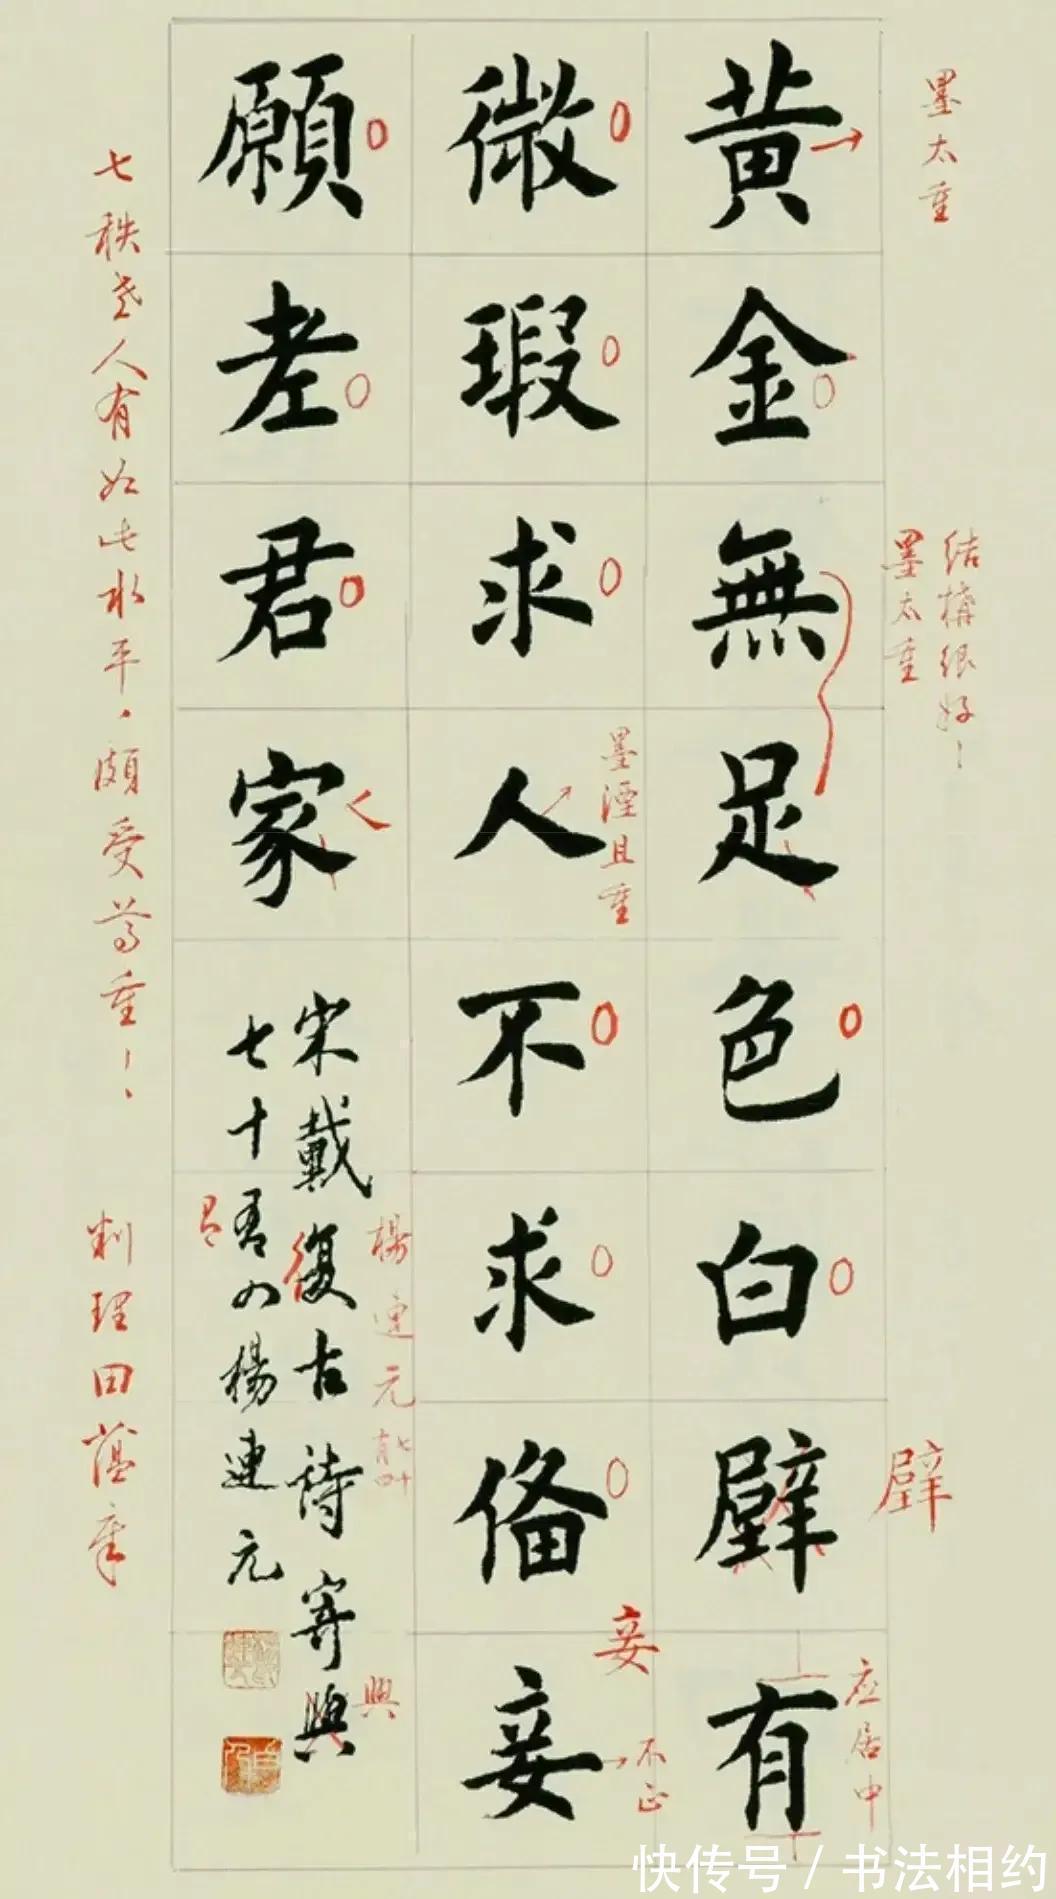 黄金無足色白璧有
微瑕求人不求俻妾
願老君家
宋戴復古詩寄興
七十有四楊連元
墨太重
結構很好！
墨太重
墨溼且重
璧
应居中
妾
不正
楊連元
七十
有四
興
君
七秩老人有如此水平，頗受尊重！！
荆理田蕴章
快传号 / 书法相约